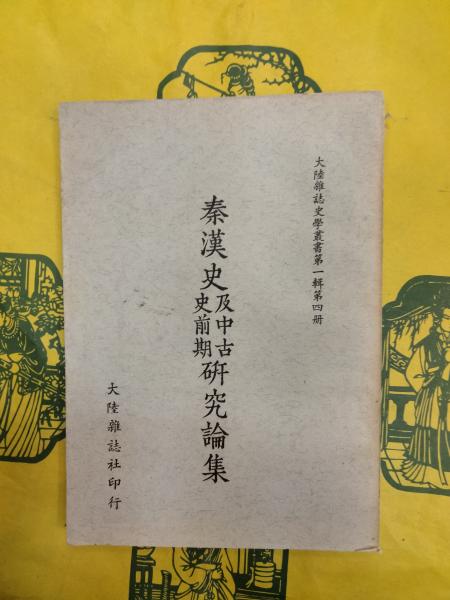 大陸雜誌史學叢書第一輯第四册
秦漢史及中古史前期研究論集
大陸雜誌社印行